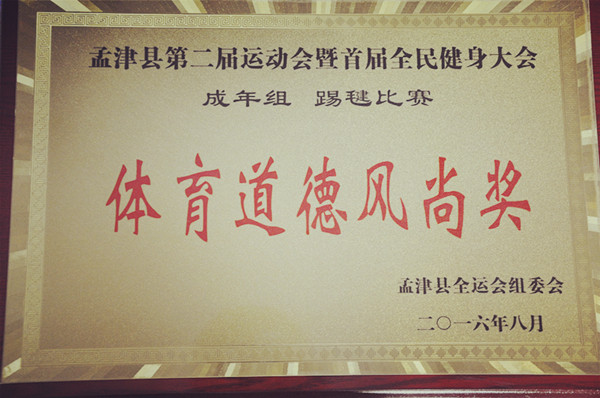 孟津县第二届运动会暨首届全民健身大会
成年组 踢毽比赛
体育道德风尚奖
孟津县全运会组委会
二〇一六年八月